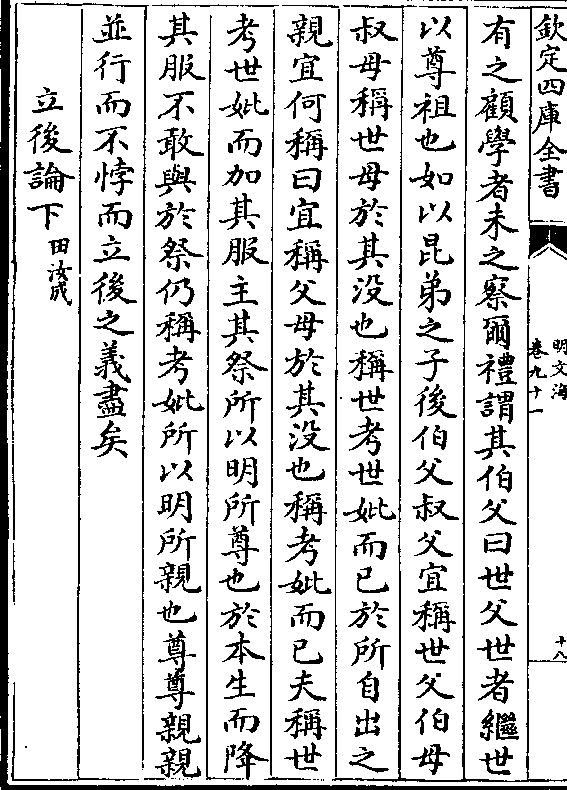 欽定四庫全書
明文海
卷九十一
十八
有之顧學者未之察爾禮謂其伯父曰世父世者繼世
以尊祖也如以昆弟之子後伯父叔父宜稱世父伯母
叔母稱世母於其没也稱世考世妣而已於所自出之
親宜何稱曰宜稱父母於其没也稱考妣而已夫稱世
考世妣而加其服主其祭所以明所尊也於本生而降
其服不敢與於祭仍稱考妣所以明所親也尊尊親親
並行而不悖而立後之義盡矣
立後論下田汝成